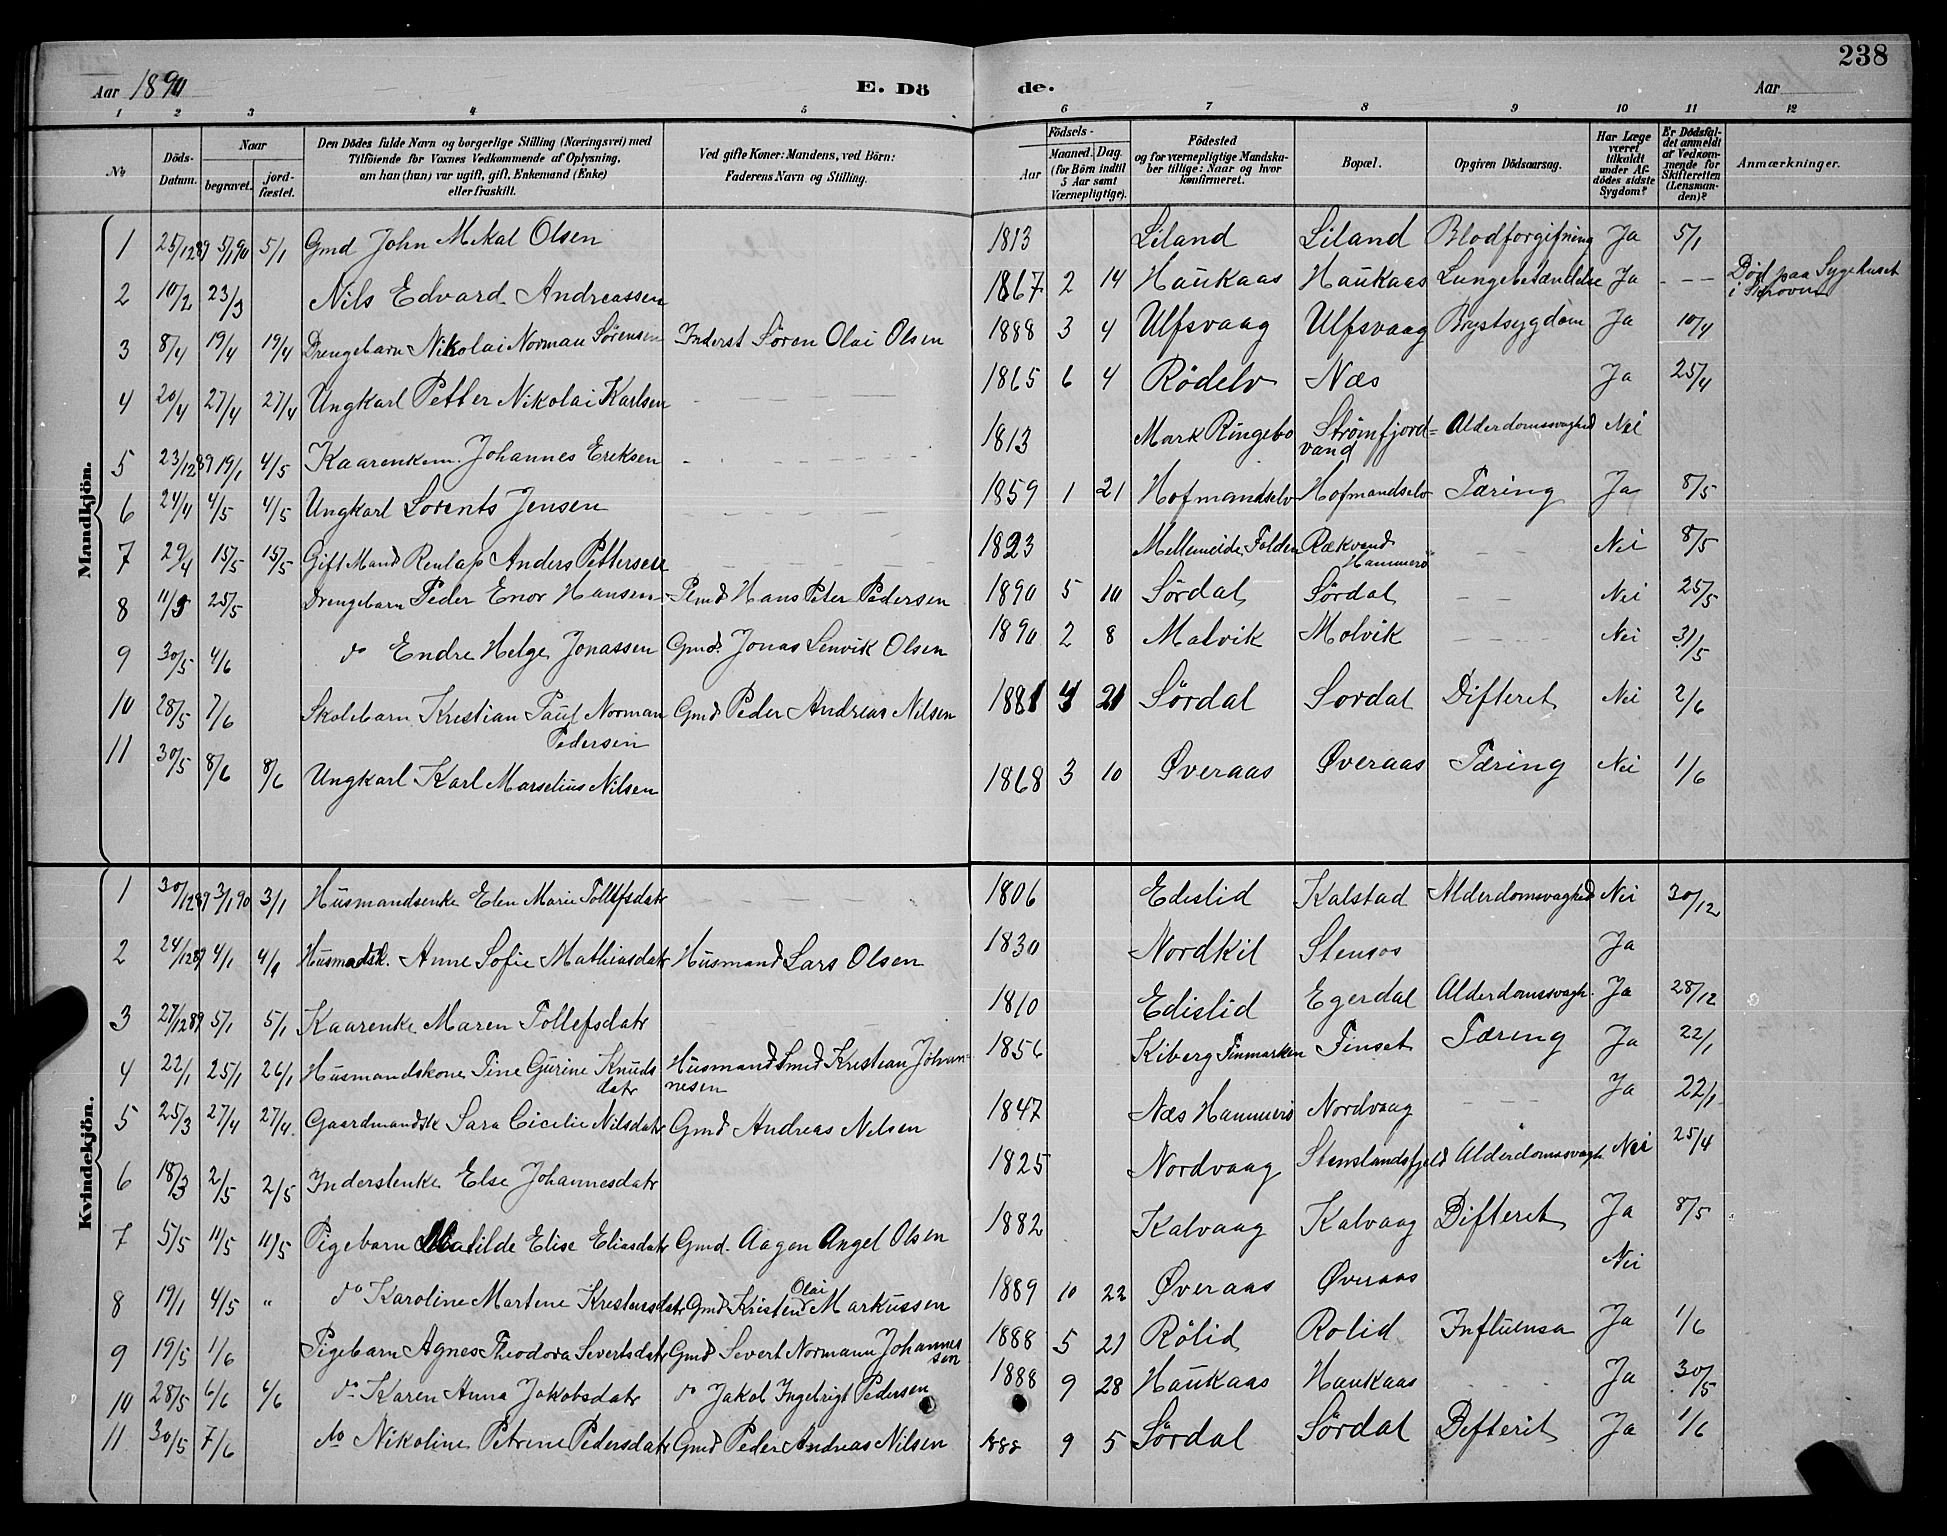 238
Aar 1890 E. Dö de. Aar
1 2 3 4 5 6 7 8 9 10 11 12
No
Döds-Datum.
Naar
begravet.
jord-fæstet.
Den Dödes fulde Navn og borgerlige Stilling (Næringsvei) med
Tilföiende for Voxnes Vedkommende af Oplysning,
om han (hun) var ugift, gift, Enkemand (Enke)
eller fraskilt.
Ved gifte Koner: Mandens, ved Börn:
Faderens Navn og Stilling.
Födsels-
Aar
Maaned. Dag.
(for Börn indtil
5 Aar samt
Værnepligtige).
Födested
og for værnepligtige Mandska-
ber tillige: Naar og hvor
konfirmeret.
Bopæl.
Opgiven Dödsaarsag.
Har Læge
været
tilkaldt
under Af-
dödes sidste
Sygdom?
Er Dödsfal-
det anmeldt
af Vedkom-
mende for
Skifteretten
(Lensman-
den)?
Anmærkninger.
Mandkjön.
1 25/12 89 5/1 90 5/1 Gmd John Mikal Olsen 1813 Liland Liland Blodforgiftning Ja 5/1
2 10/2 23/3 Nils Edvard Andreassen 1867 2 14 Haukaas Haukaas Lungebetændelse Ja - - - Död paa Sygehuset
i Skroven
3 8/4 19/4 19/4 Drengebarn Nikolai Norman Sörensen Inderst Sören Olai Olsen 1888 3 4 Ulfsvaag Ulfsvaag Brystsygdom Ja 10/4
4 20/4 27/4 27/4 Ungkarl Petter Nikolai Karlsen 1865 6 4 Rödelv Næs Ja 25/4
5 23/12 89 19/1 4/5 Kaarenkem. Johannes Eriksen 1813 Mark Ringebo Strömfjord=
vand Alderdomssvaghed Nei
6 24/4 4/5 4/5 Ungkarl Lorents Jensen 1859 1 21 Hofmandselv Hofmandselv Tæring Ja 8/5
7 29/4 15/5 15/5 Gift Mand Anders Pettersen 1823 Folden Rækvand
Hammerö - - Nei 8/5
8 11/5 25/5 Drengebarn Peder Enor Hansen Hans Peter Pedersen 1890 5 10 Sördal Sördal - - Nei 25/5
9 30/5 4/6 do Endre Helge Jonassen Gmd. Jonas Lenvik Olsen 1890 2 8 Malvik Molvik Nei 31/5
10 28/5 7/6 Skolebarn Kristian Paul Norman
Pedersen Gmd Peder Andreas Nilsen 1881 4 21 Sördal Sordal Difterit Nei 2/6
11 30/5 8/6 8/6 Ungkarl Karl Marselius Nilsen 1868 3 10 Øveraas Øveraas Tæring Nei 1/6
Kvindekjön.
1 30/12 89 3/1 90 3/1 Husmandsenke Elen Marie Tollefsdatr 1806 Edislid Kalstad Alderdomsvaghed Nei 30/12
2 24/12 89 4/1 4/1 Husmadsk. Anne Sofie Mathiasdatr Husmand Lars Olsen 1830 Nordkil Stensos Ja
3 27/12 89 5/1 5/1 Kaarenke Maren Tollefsdatr 1810 Edislid Egerdal Alderdomssvagh. Ja 28/12
4 22/1 25/1 26/1 Husmandskone Tine Gurine Knuds
datr Husmand Smed Kristian Johan-
nesen 1856 Kiberg Finmarken Finset Tæring Ja 22/1
5 25/3 27/4 27/4. Gaardmandsk Sara Cicilie Nilsdatr Gmd Andreas Nilsen 1847 Næs Hammerö Nordvaag - - - Ja 22/1
6 18/3 2/5 2/5 Inderstenke Else Johannesdatr 1825 Nordvaag Stenslandsfjeld Alderdomssvagh. Nei 25/4
7 5/5 11/5 11/5 Pigebarn Matilde Elise Eliasdatr Gmd. Aagen Angel Olsen 1882 Kalvaag Kalvaag Difterit Ja 8/5
8 19/1 4/5 " do Karoline Martene Kristensdatr Gmd Kristen Olai Markussen 1889 10 22 Øveraas Øveraas Nei
9 19/5 1/6 Pigebarn Agnes Theodora Sivertsdatr Gmd Sivert Normann Johannes
sen 1888 5 21 Rölid Rolid Influensa Ja 1/6
10 28/5 6/6 6/6 do Karen Anna Jakobsdatr do Jakob Ingebrigt Pedersen 1888 9 28 Haukaas Haukaas Ja 30/5
11 30/5 7/6 do Nikoline Petrine Pedersdatr Gmd Peder Andreas Nilsen 1888 9 5 Sördal Sördal Difterit Ja 1/6